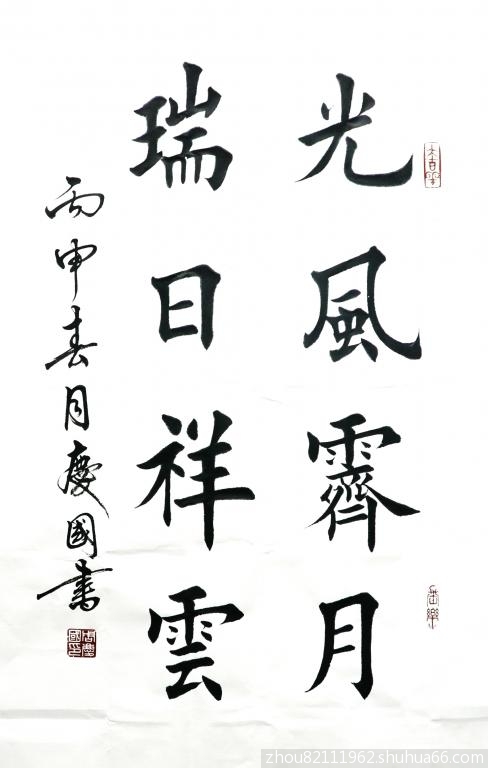 光風霽月
瑞日祥雲
丙申春月慶國書
zhou82111962.shuhua66.com